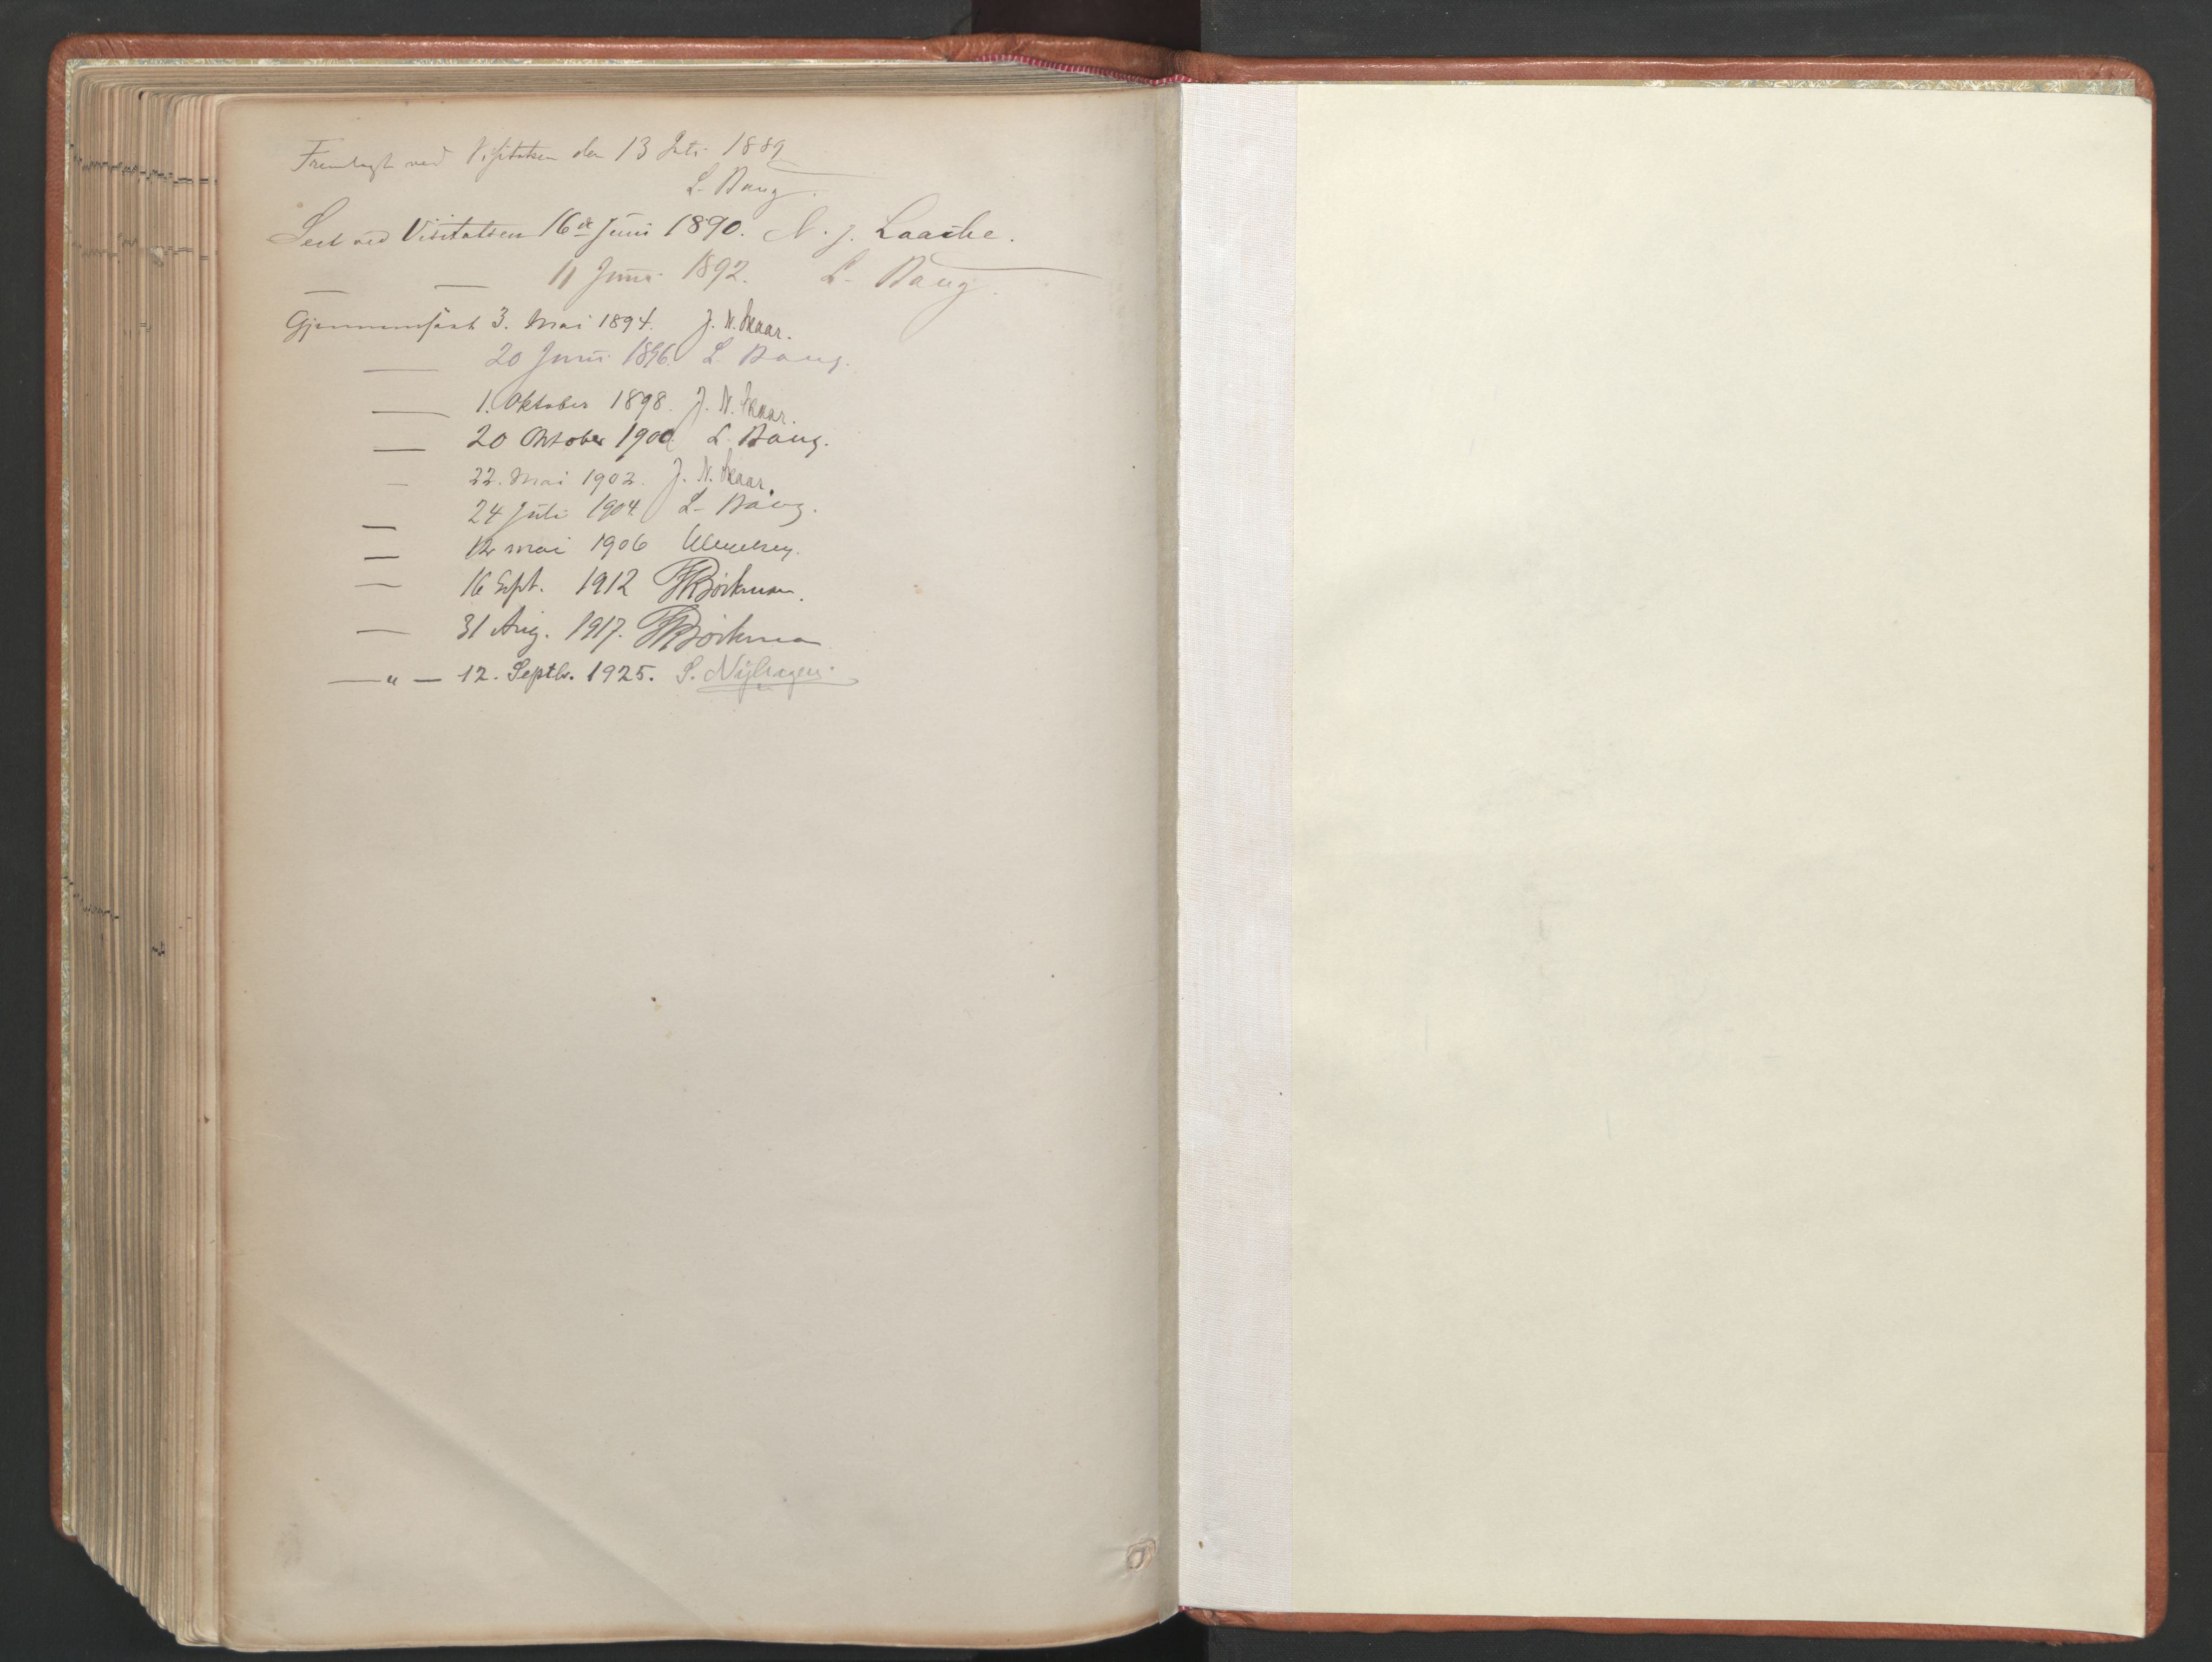 Fremlagt ved Visitatsen den 13 Juli 1889
L. Daug.
Seet ved Visitatsen 16de Juni 1890. N. J. Laache.
— — 11 Juni 1892. L. Daug.
Gjennemseet 3. Mai 1894. J. N. Skaar.
— 20 Juni 1896. L. Daug.
— 1. Oktober 1898. J. N. Skaar.
— 20 Oktober 1900. L. Daug.
— 22. Mai 1902. J. N. Skaar.
— 24 Juli 1904 L. Daug.
— 12 mai 1906
— 16 Sept. 1912 Bøckman.
— 31 Aug. 1917. Bøckman
—„— 12. Septbr. 1925. S. Nyhagen.